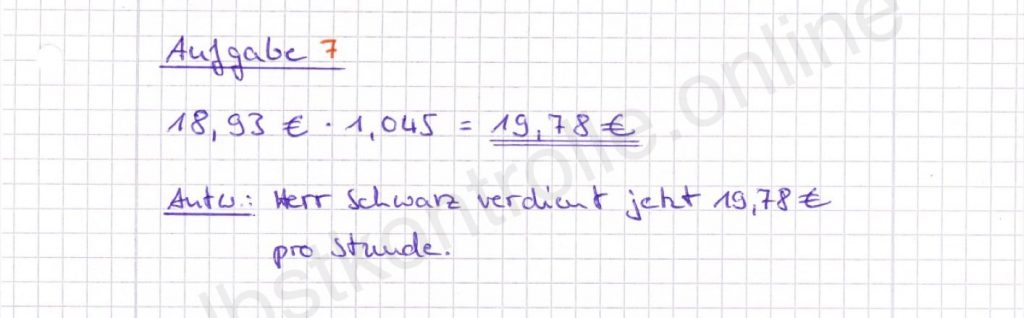 Aufgabe 7
18,93 € · 1,045 = 19,78 €
Antw.: Herr Schwarz verdient jetzt 19,78 €
pro Stunde.
lbstkontrolle.online